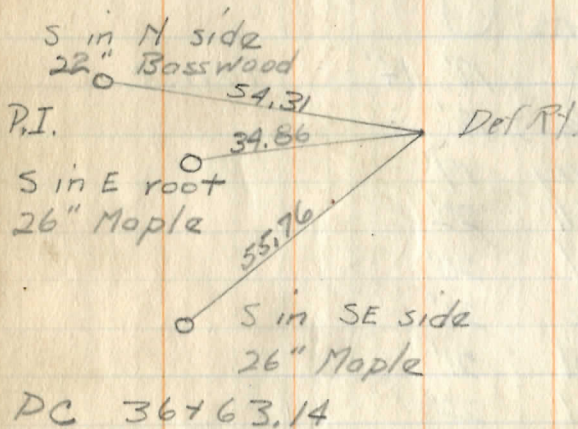 S in N side
22" Basswood
54.31
P.I.
34.86
Def Rt.
S in E root
26" Maple
55.76
S in SE side
26" Maple
PC 36+63.14